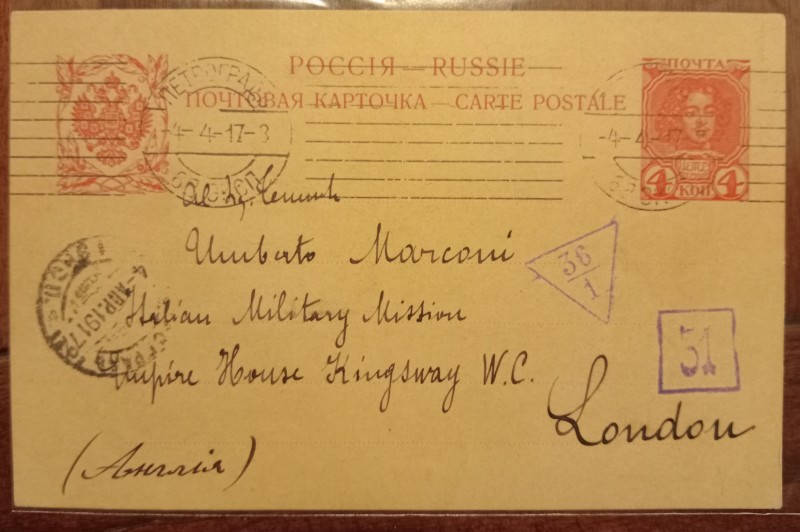 РОССІЯ — RUSSIE
ПОЧТОВАЯ КАРТОЧКА — CARTE POSTALE
ПОЧТА
4 4
КОП
ПЕТРОГРАД
-4-4-17-8
-4-4-17-
4- АПР.1917
Al Sig. Tenente
Umberto Marconi
Italian Military Mission
Empire House Kingsway W.C.
London
(Англія)
36
1
31